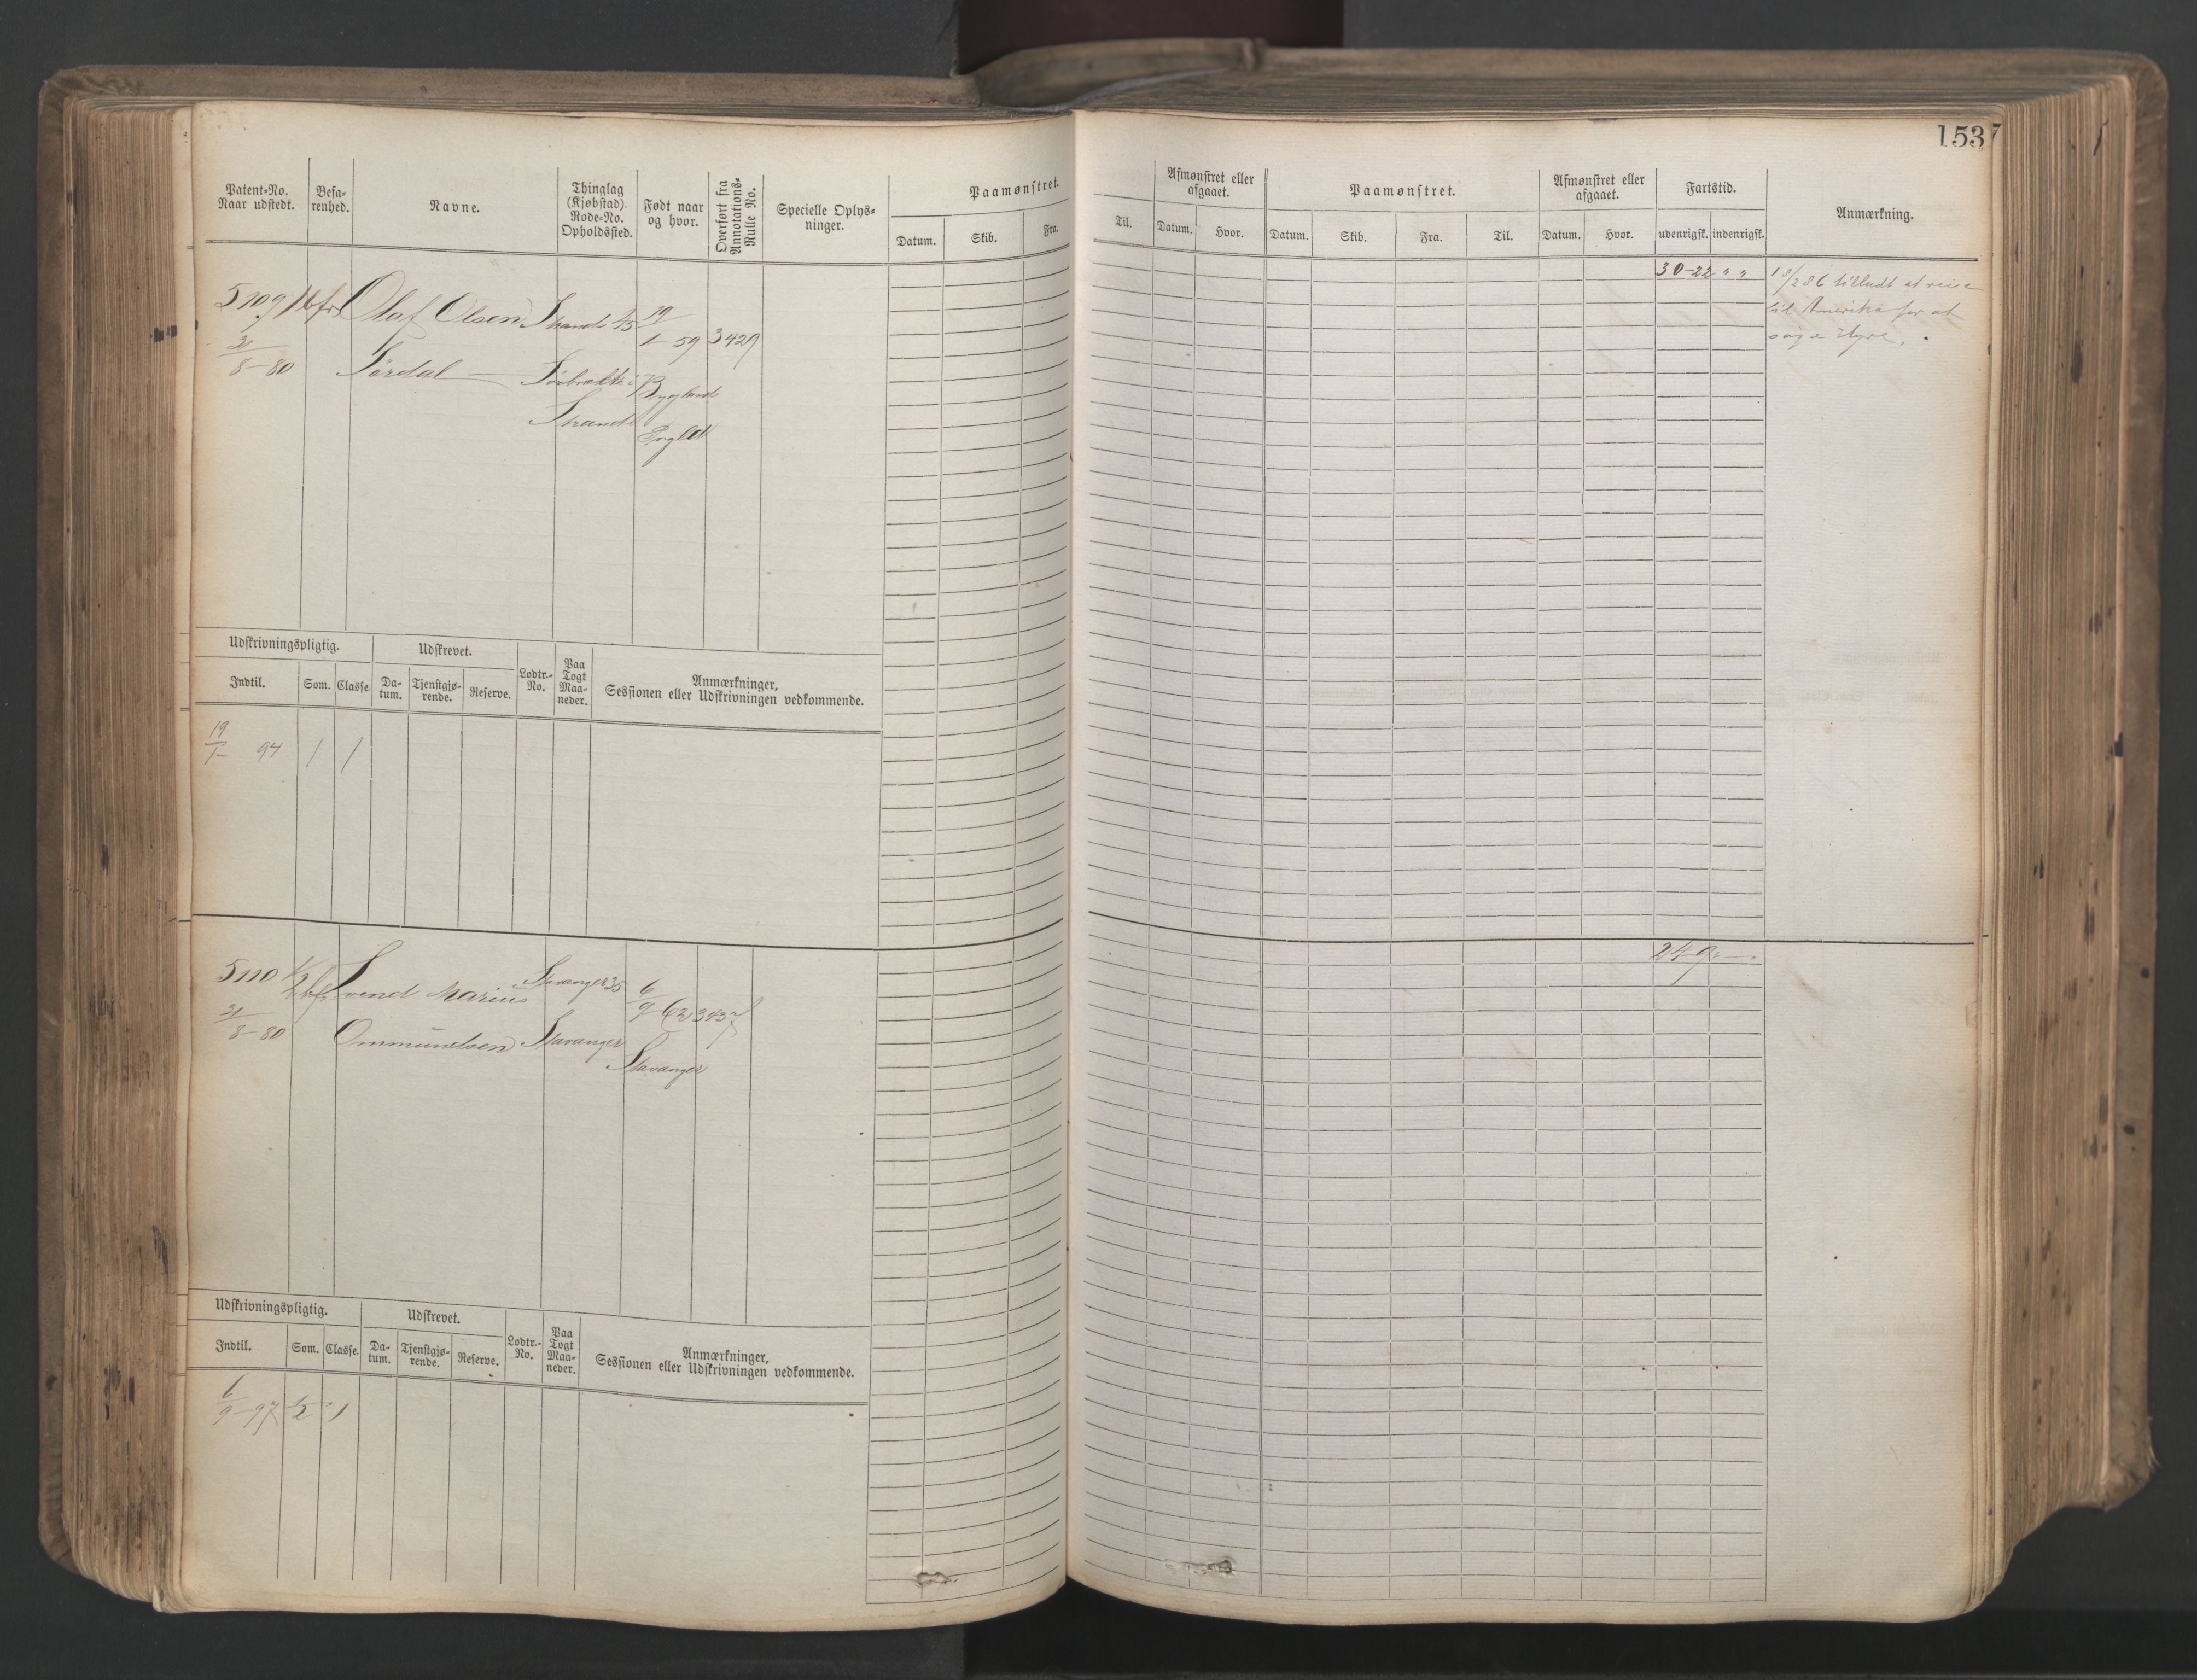 153
Patent-No. Naar udstedt.
Befa-
renhed.
Navne.
Thinglag
(Kjøbstad).
Rode-No.
Opholdssted.
Født naar
og hvor.
Overført fra
Annotations-
Rulle No.
Specielle Oplys-
ninger.
Paamønstret.
Datum. Skib. Fra. Til.
Afmønstret eller
afgaaet.
Datum. Hvor.
Paamønstret.
Datum. Skib. Fra. Til.
Afmønstret eller
afgaaet.
Datum. Hvor.
Fartstid.
udenrigsk. indenrigsk.
Anmærkning.
5109 Olaf Olsen Strand 19/1 59 3429
31/8-80
Strand
30-22 " "
til Amerika for at
søge Hyre.
Udskrivningspligtig.
Indtil. Som. Classe.
Udskrevet.
Da-
tum.
Tjenstgjø-
rende.
Reserve.
Lodtr.-
No.
Paa
Togt
Maa-
neder.
Anmærkninger,
Sessionen eller Udskrivningen vedkommende.
19/1- 94 1 1
5110 Svend Marius Stavanger 35 6/9 62 3437
31/8-80 Ommundsen Stavanger
Stavanger
24-9
Udskrivningspligtig.
Indtil. Som. Classe.
Udskrevet.
Da-
tum.
Tjenstgjø-
rende.
Reserve.
Lodtr.-
No.
Paa
Togt
Maa-
neder.
Anmærkninger,
Sessionen eller Udskrivningen vedkommende.
6/9-97 1/2 1